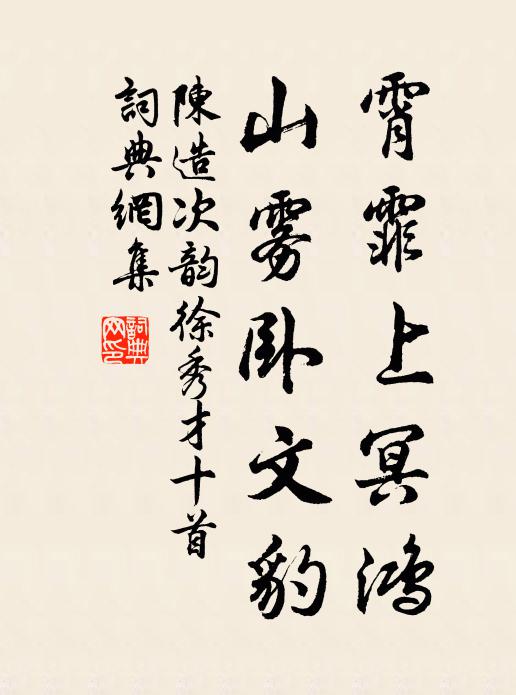 霄霏上冥鴻
山雾卧文豹
陳造次韵徐秀才十首
詞典網集
詞典网印